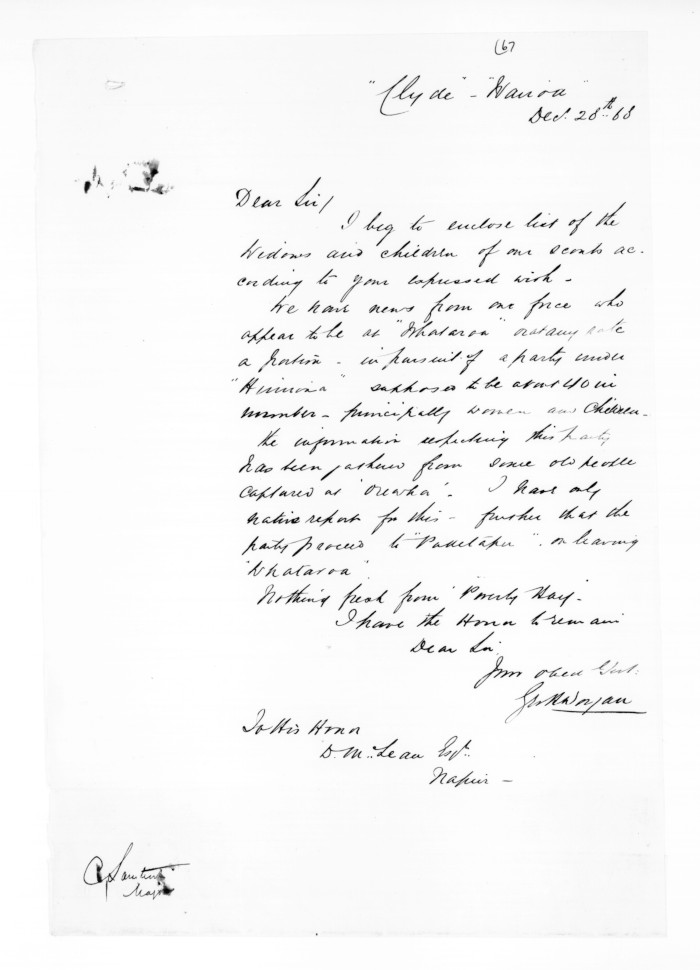 (67
"Clyde" - "Wairoa"
Dec. 28th 68
Dear Sir/
I beg to enclose list of the
Widows and children of our scouts ac-
cording to your expressed wish -
We have news from our force who
appear to be at "Whataroa" or at any rate
a portion - in pursuit of a party under
supposed to be about 40 in
number - principally women and children -
the information respecting this party
has been gathered from some old people
captured at. I have only
native report for this - further that the
party proceed to on leaving
"Whataroa"
Nothing fresh from Poverty Bay -
I have the Honor to remain
Dear Sir
Your obed Svt.
Geo Worgan
To His Honor
D. McLean Esqr.
Napier -
Major